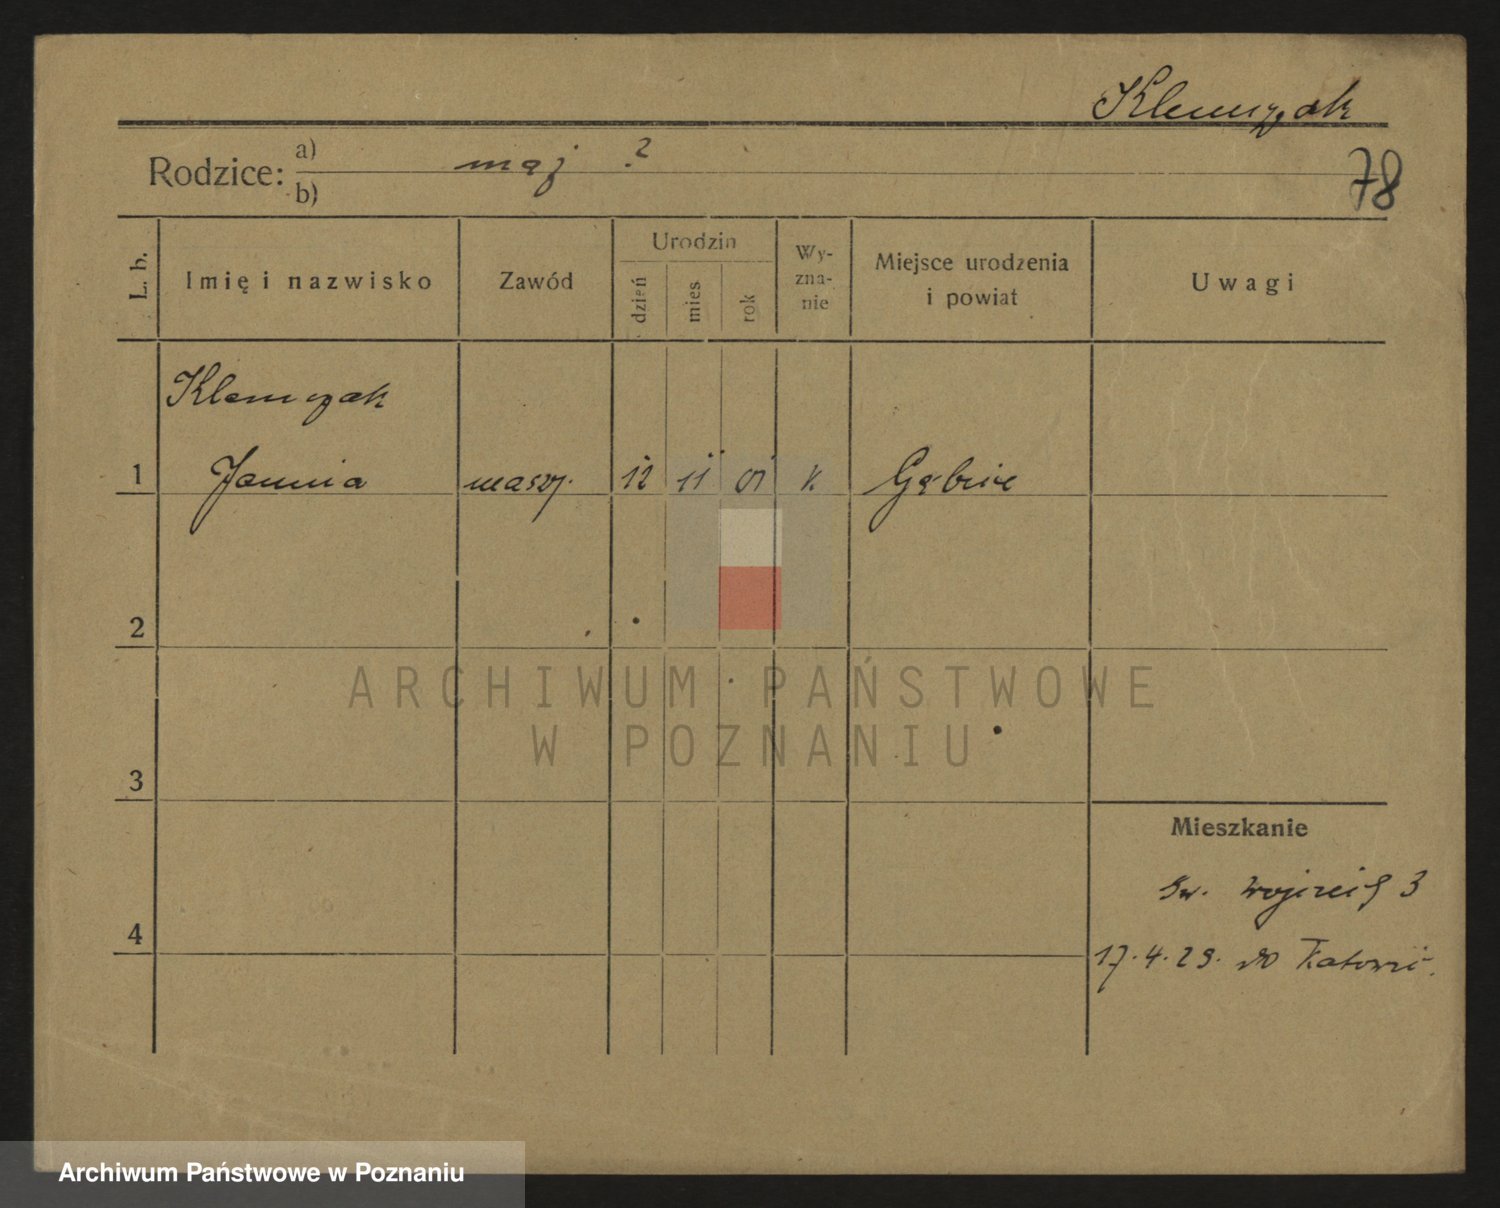 Klemczak
Rodzice: a) mąż ?
b)
78
L. b. Imię i nazwisko Zawód Urodzin dzień mies rok Wy-zna-nie Miejsce urodzenia i powiat Uwagi
Klemczak
1 Janina maszy. 12 11 01 k.
2
ARCHIWUM PAŃSTWOWE
W POZNANIU
3
Mieszkanie
św. Wojciech 3
4
17.4.29. do Katowic.
Archiwum Państwowe w Poznaniu